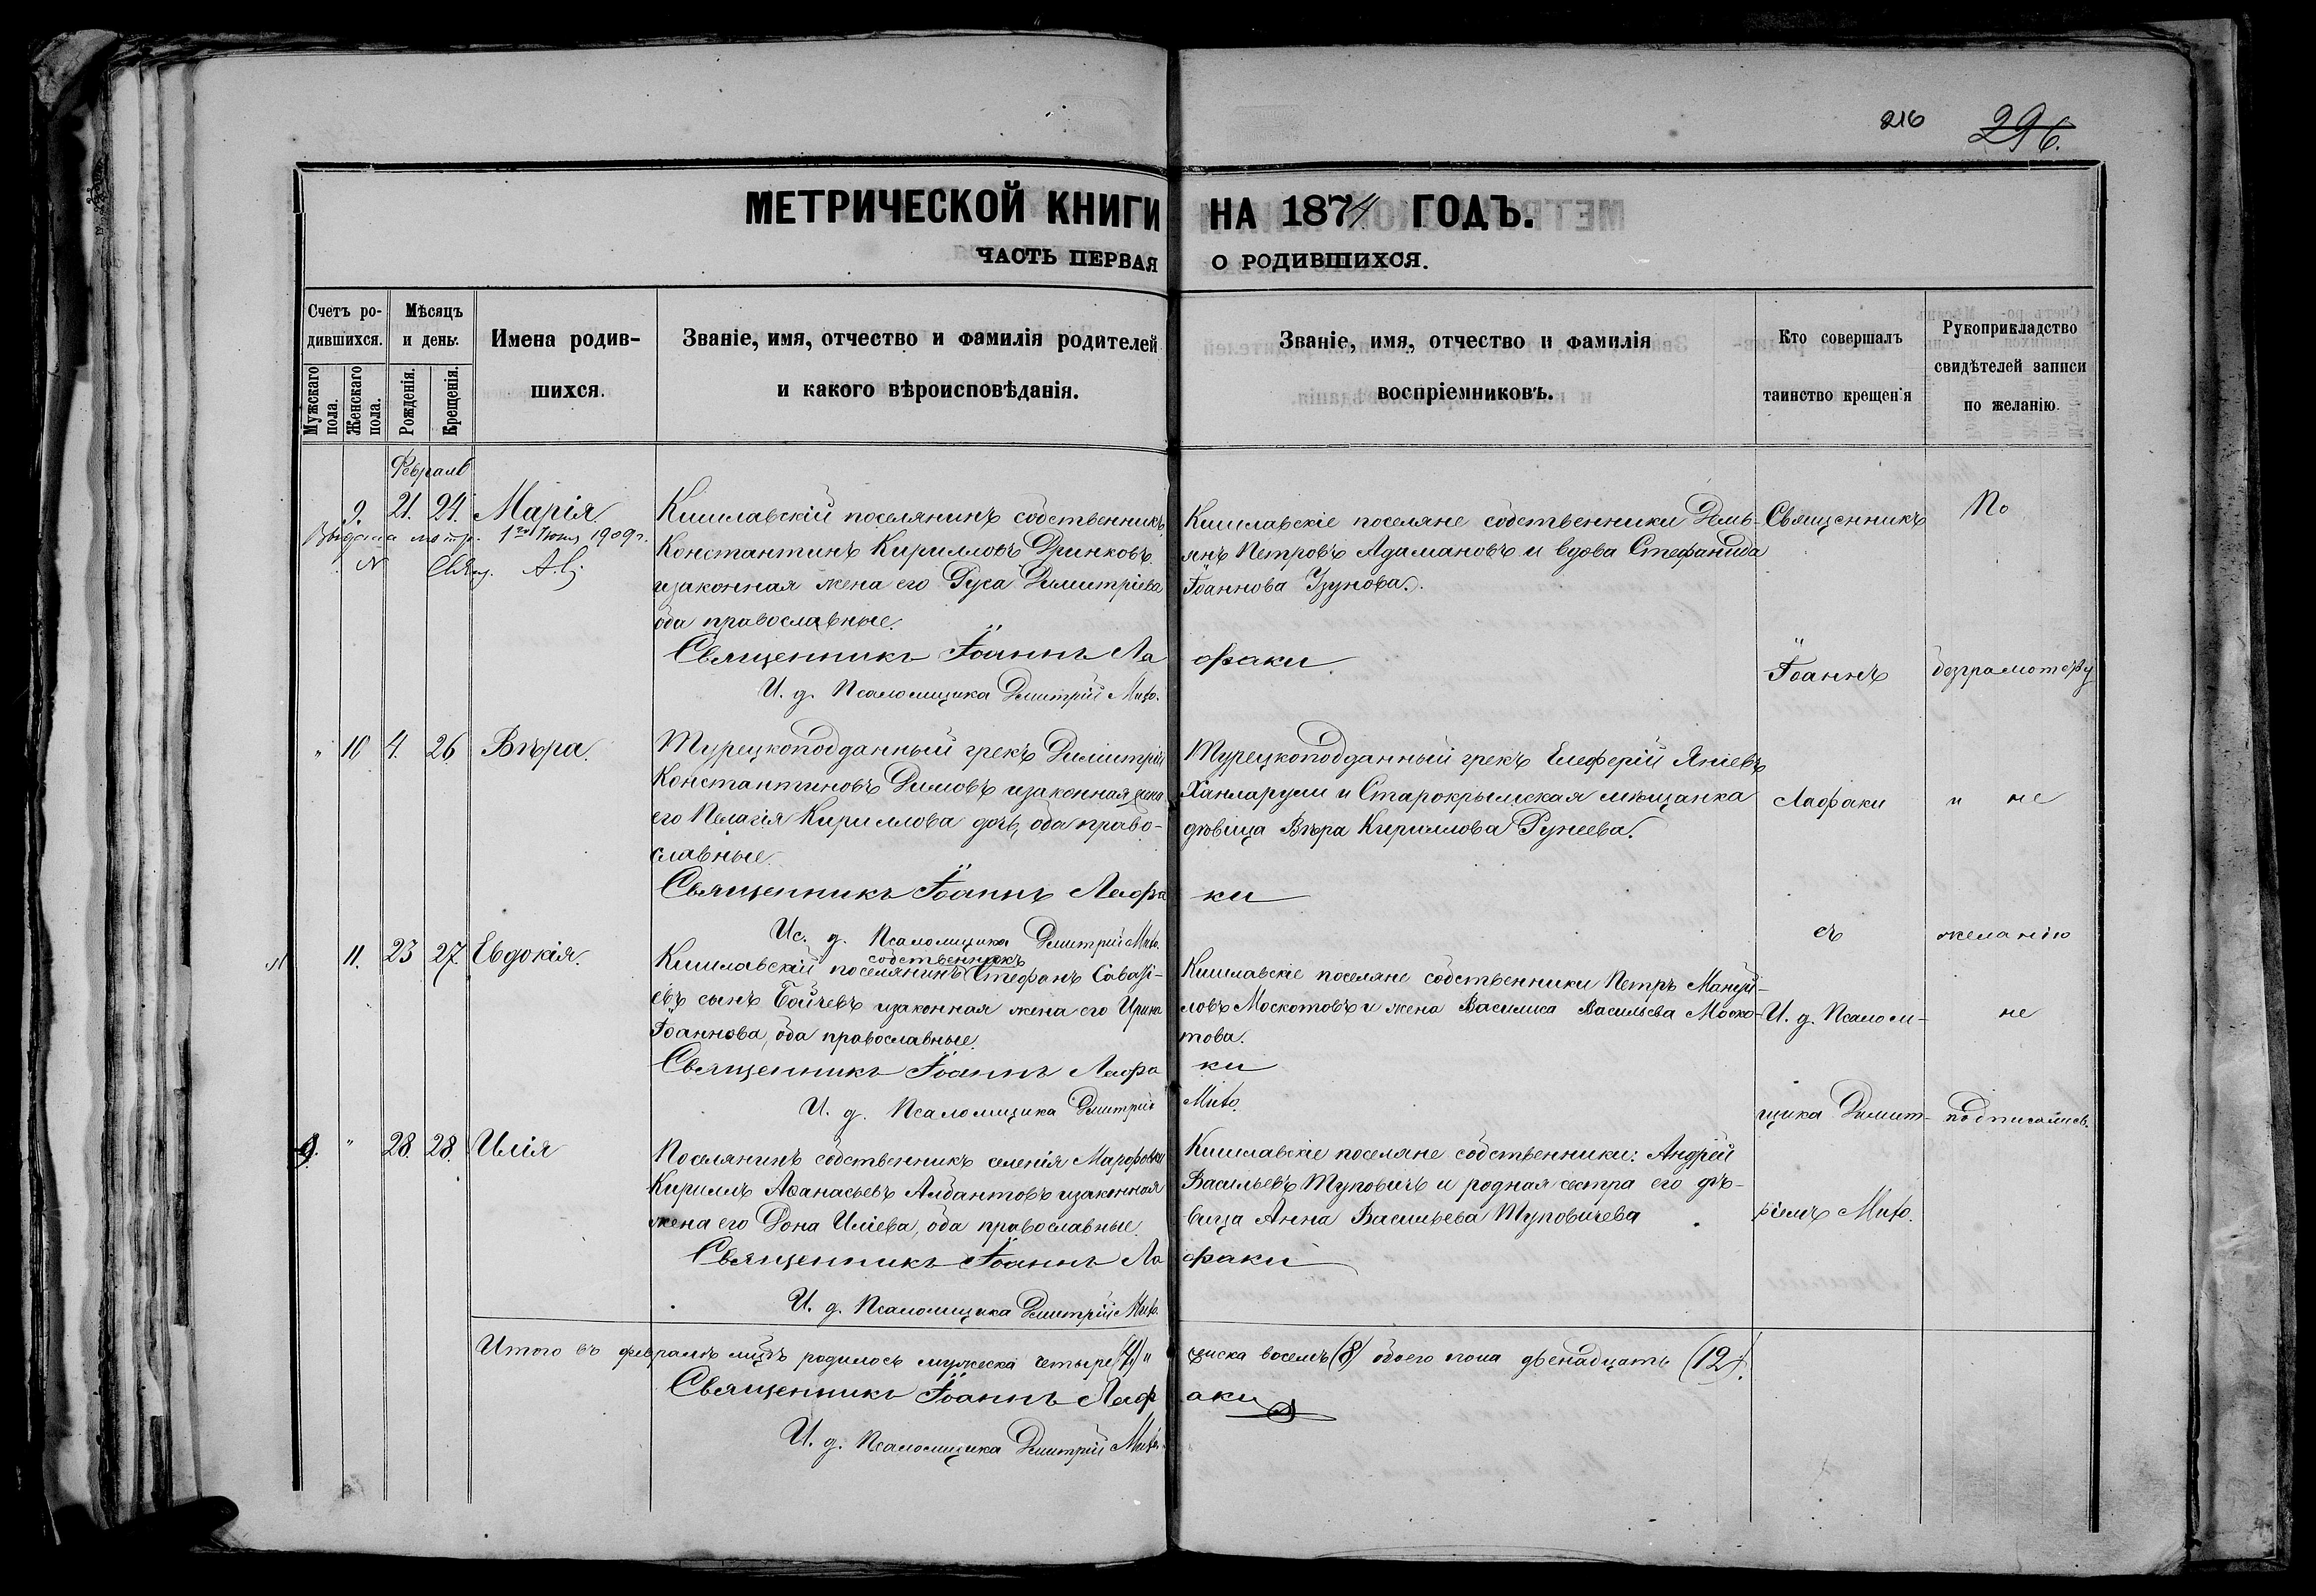 216 296.
МЕТРИЧЕСКОЙ КНИГИ НА 1874 ГОДЪ.
ЧАСТЬ ПЕРВАЯ О РОДИВШИХСЯ.
Счетъ родившихся.
Мужскаго пола.
Женскаго пола.
Мѣсяцъ и день.
Рожденія.
Крещенія.
Имена родившихся.
Званіе, имя, отчество и фамилія родителей
и какого вѣроисповѣданія.
Званіе, имя, отчество и фамилія
воспріемниковъ.
Кто совершалъ
таинство крещенія
Рукоприкладство
свидѣтелей записи
по желанію.
Февраль
9. 21. 24. Марія.
Выдана метр. 1го 1909 г.
Кишлавскій поселянинъ собственникъ
Константинъ Кирилловъ Дринковъ
изаконная жена его Руса Димитріева
оба православные.
Священникъ Іоаннъ Лафаки
И. д. Псаломщика Димитрій
Кишлавскіе поселяне собственники Демь-
янъ Петровъ Адамановъ и вдова Стефанида
Іоаннова Узунова.
" 10 4. 26 Вѣра.
Турецкоподданный грекъ Димитрій
Константиновъ Димовъ изаконная жена
его Пелагія Кириллова дочь, оба право-
славные.
Священникъ Іоаннъ Лафаки
Ис. д. Псаломщика Димитрій
Турецкоподданный грекъ Елеферій Яніевъ
Ханларули и Старокрымская мѣщанка
дѣвица Вѣра Кириллова Рунеева.
11. 23 27. Евдокія.
собственникъ
Кишлавскій поселянинъ Стефанъ Савалі-
евъ сынъ Бойчевъ изаконная жена его Ирина
Іоаннова, оба православные.
Священникъ Іоаннъ Лафаки
И. д. Псаломщика Димитрій
Кишлавскіе поселяне собственники Петръ Мануй-
ловъ Москотовъ и жена Василиса Васильева Моско-
това.
9. " 28. 28. Илія
Поселянинъ собственникъ селенія Марфовки
Кириллъ Аѳанасьевъ Албантовъ изаконная
жена его Дона Иліева, оба православные.
Священникъ Іоаннъ Лафаки
И. д. Псаломщика Димитрій
Кишлавскіе поселяне собственники: Андрей
Васильевъ Туповичъ и родная сестра его дѣ-
вица Анна Васильева Туповичева
Священникъ
Іоаннъ
Лафаки
съ
И. д. Псалом-
щика Димит-
ріемъ
По
и не
желанію
не
подписались.
Итого въ февралѣ мцѣ родилось мужеска четыре (4) " женска восемь (8) обоего пола двенадцать (12).
Священникъ Іоаннъ Лафаки
И. д. Псаломщика Димитрій